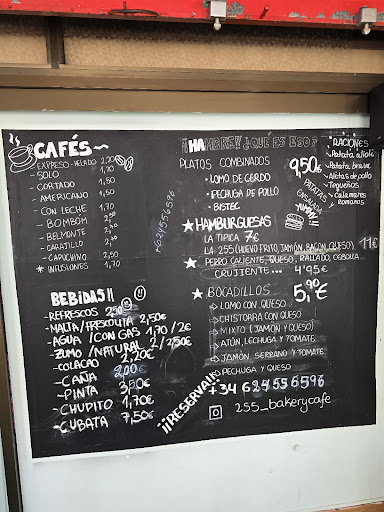 CAFÉS
EXPRESO-HELADO 2,20
- SOLO 1,30
- CORTADO 1,50
- AMERICANO 1,50
- CON LECHE 1,70
- BOMBOM
- BELMONTE
- CARAJILLO
- CAPUCHINO 2,50
* INFUSIONES 1,70
BEBIDAS!!
- REFRESCOS 2,50
- MALTA/FRESCOLITA 2,50€
- AGUA /CON GAS 1,70 /2€
- ZUMO /NATURAL 2/2,50€
- COLACAO 2,20€
- CAÑA 2,00€
- PINTA 3,50€
- CHUPITO 1,70€
- CUBATA 7,50€
624556596
¡¡HAMBRE!! ¿QUÉ ES ESO?
PLATOS COMBINADOS 9,50€
• LOMO DE CERDO
• PECHUGA DE POLLO
• BISTEC
PATATAS
ENSALADA
YUMMY!!
* HAMBURGUESAS
LA TIPICA 7€
LA 255 (HUEVO FRITO, JAMÓN, BACON, QUESO) 11€
* PERRO CALIENTE, QUESO RALLADO, CEBOLLA
CRUJIENTE... 4'95€
* BOCADILLOS 5,90€
LOMO CON QUESO
CHISTORRA CON QUESO
MIXTO (JAMÓN Y QUESO)
ATÚN, LECHUGA Y TOMATE
JAMÓN SERRANO Y TOMATE
PECHUGA Y QUESO
¡¡RESERVA!!
+34 624556596
255_bakerycafe
* RACIONES
- Patata alioli
- Patata brava
- Alitas de pollo
- Tequeños
- Calamares
romanos